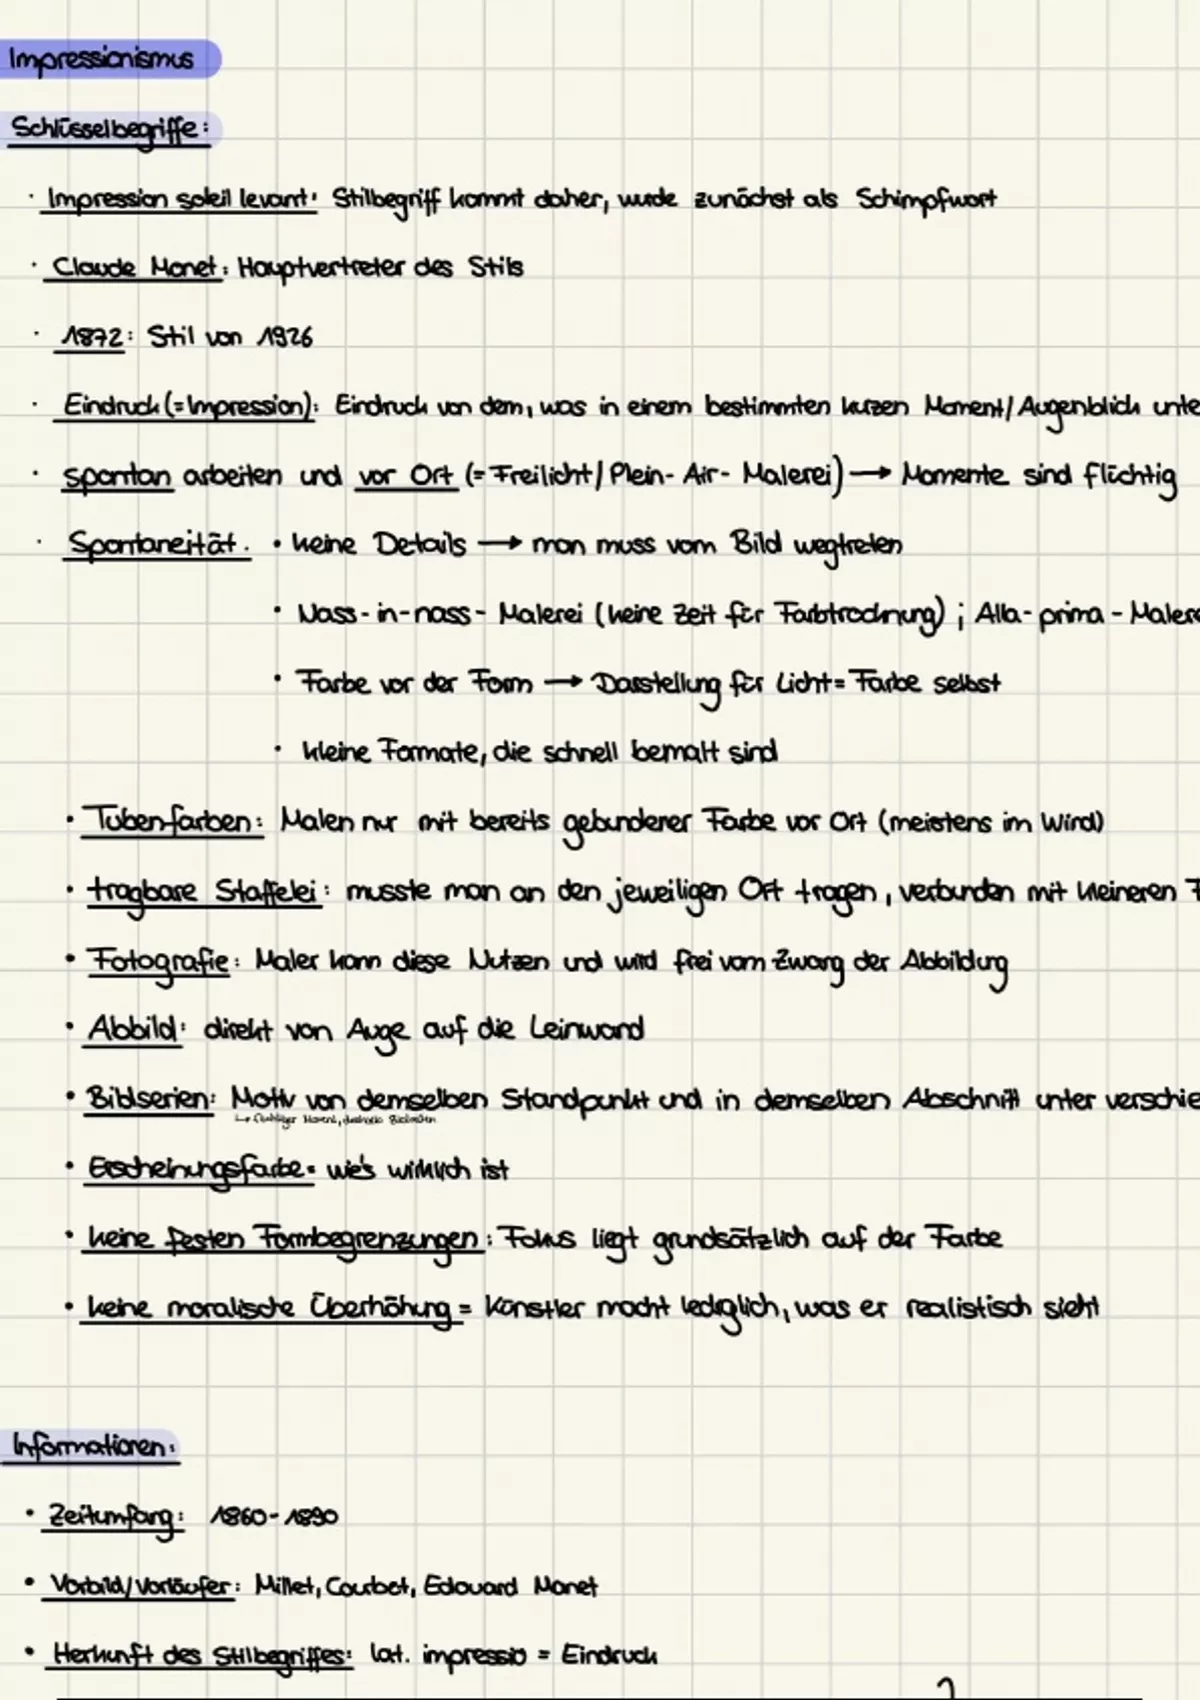 Impressionismus
Schlüsselbegriffe:
· Impression soleil levant: Stilbegriff kommt daher, wurde zunächst als Schimpfwort
· Claude Monet: Hauptvertreter des Stils
· 1872: Stil von 1926
· Eindruck (=Impression): Eindruck von dem, was in einem bestimmten kurzen Moment/Augenblick unte
· spontan arbeiten und vor Ort (= Freilicht/Plein-Air-Malerei) → Momente sind flüchtig
· Spontaneität: • keine Details → man muss vom Bild wegtreten
• Nass-in-nass-Malerei (keine Zeit für Farbtrocknung); Alla-prima-Malere
• Farbe vor der Form → Darstellung für Licht = Farbe selbst
• kleine Formate, die schnell bemalt sind
• Tubenfarben: Malen nur mit bereits gebundener Farbe vor Ort (meistens im Wind)
• tragbare Staffelei: musste man an den jeweiligen Ort tragen, verbunden mit kleineren F
• Fotografie: Maler kann diese Nutzen und wird frei vom Zwang der Abbildung
• Abbild: direkt von Auge auf die Leinwand
• Bildserien: Motiv von demselben Standpunkt und in demselben Abschnitt unter verschie
↳ flüchtiger Moment,
• Erscheinungsfarbe = wie's wirklich ist
• keine festen Formbegrenzungen: Fokus liegt grundsätzlich auf der Farbe
• keine moralische Überhöhung = Künstler macht lediglich, was er realistisch sieht
Informationen:
• Zeitumfang: 1860-1890
• Vorbild/Vorläufer: Millet, Courbet, Edouard Manet
• Herkunft des Stilbegriffes: lat. impressio = Eindruck